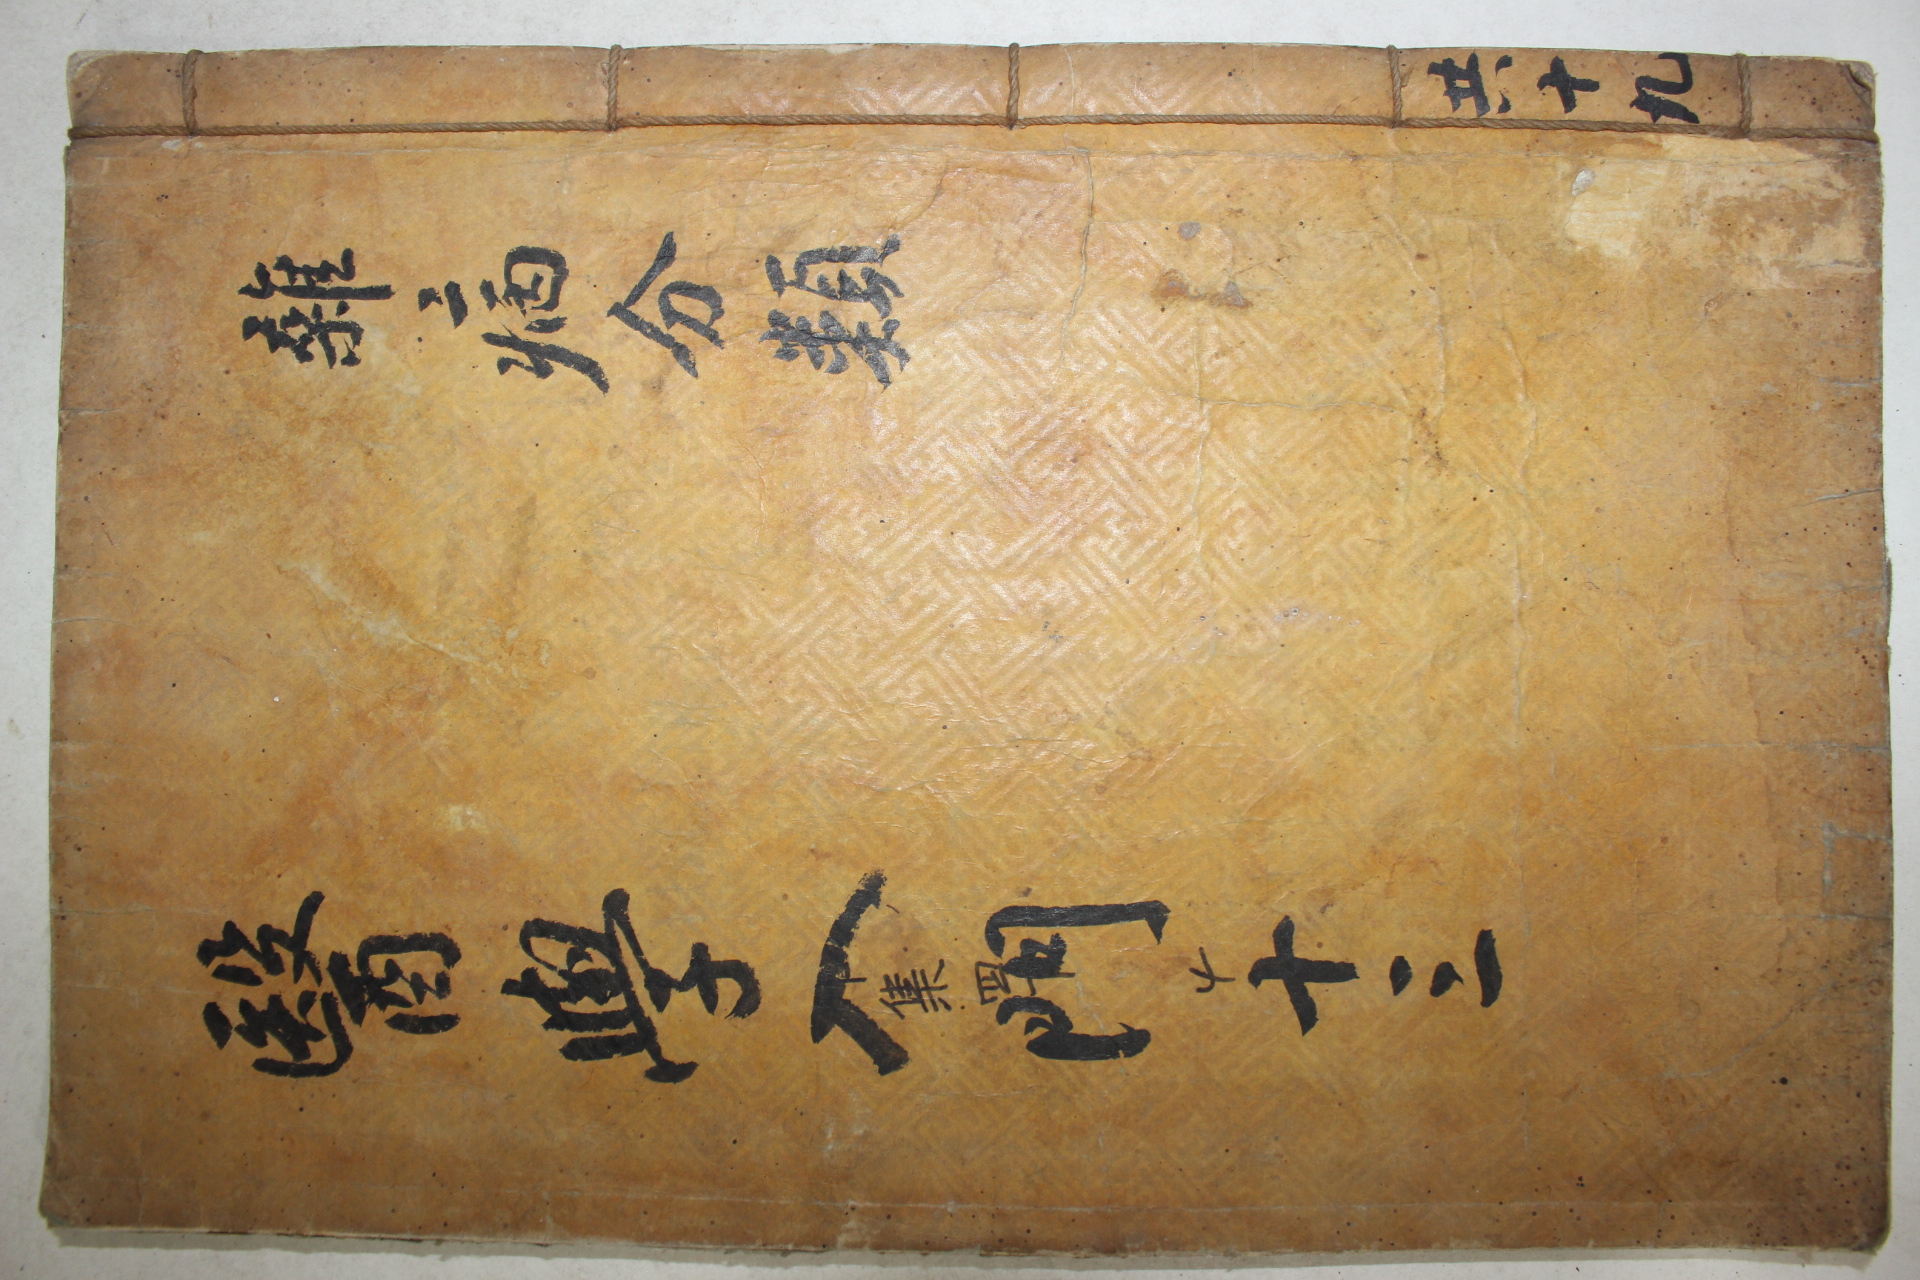 共十九
雜病分類
醫學入門 十三
集四